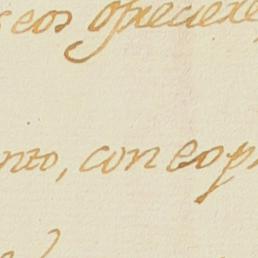 seos ofreciere
nto, con eo p